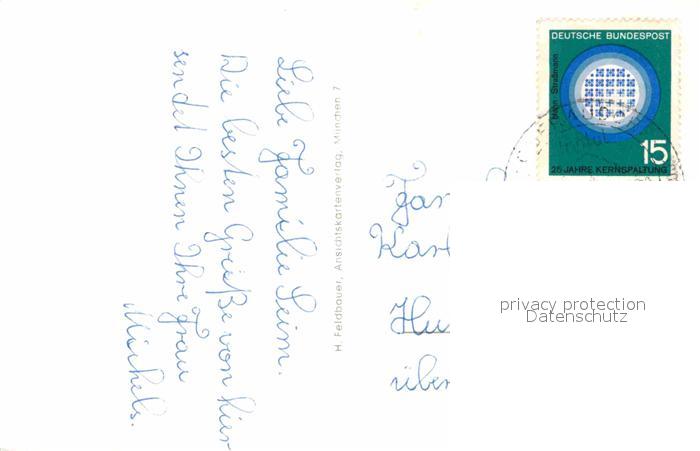 Liebe Familie Seim.
Die besten Grüße von hier
sendet Ihnen Ihre Frau
Michels.
H. Feldbauer, Ansichtskartenverlag, München 7
DEUTSCHE BUNDESPOST
Hahn Straßmann
15
25 JAHRE KERNSPALTUNG
Fam
Karl
Hu
über
privacy protection
Datenschutz